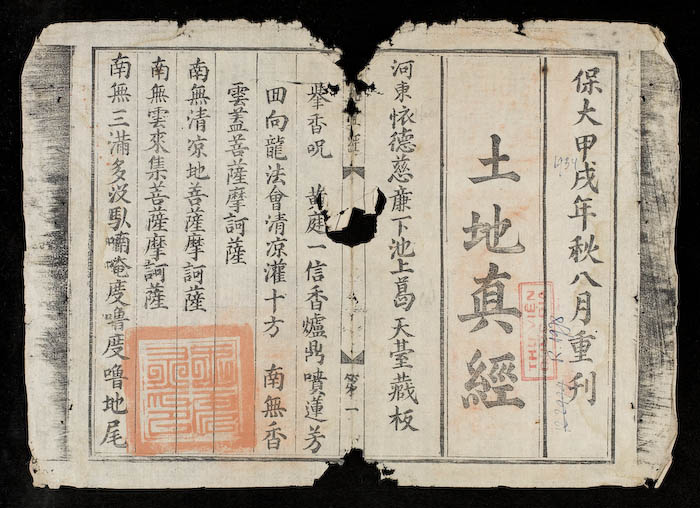 保大甲戌年秋八月重刊
土地真經
河東懷德慈廉下池上葛天臺藏板
經
第一
舉香呪 黃庭一信香爐鼎噴蓮芳
田向龍法會清凉灌十方 南無香
雲盖菩薩摩訶薩
南無清凉地菩薩摩訶薩
南無雲來集菩薩摩訶薩
南無三滿多没馱喃唵度嚕度嚕地尾
1934
THU VIEN
R.1978